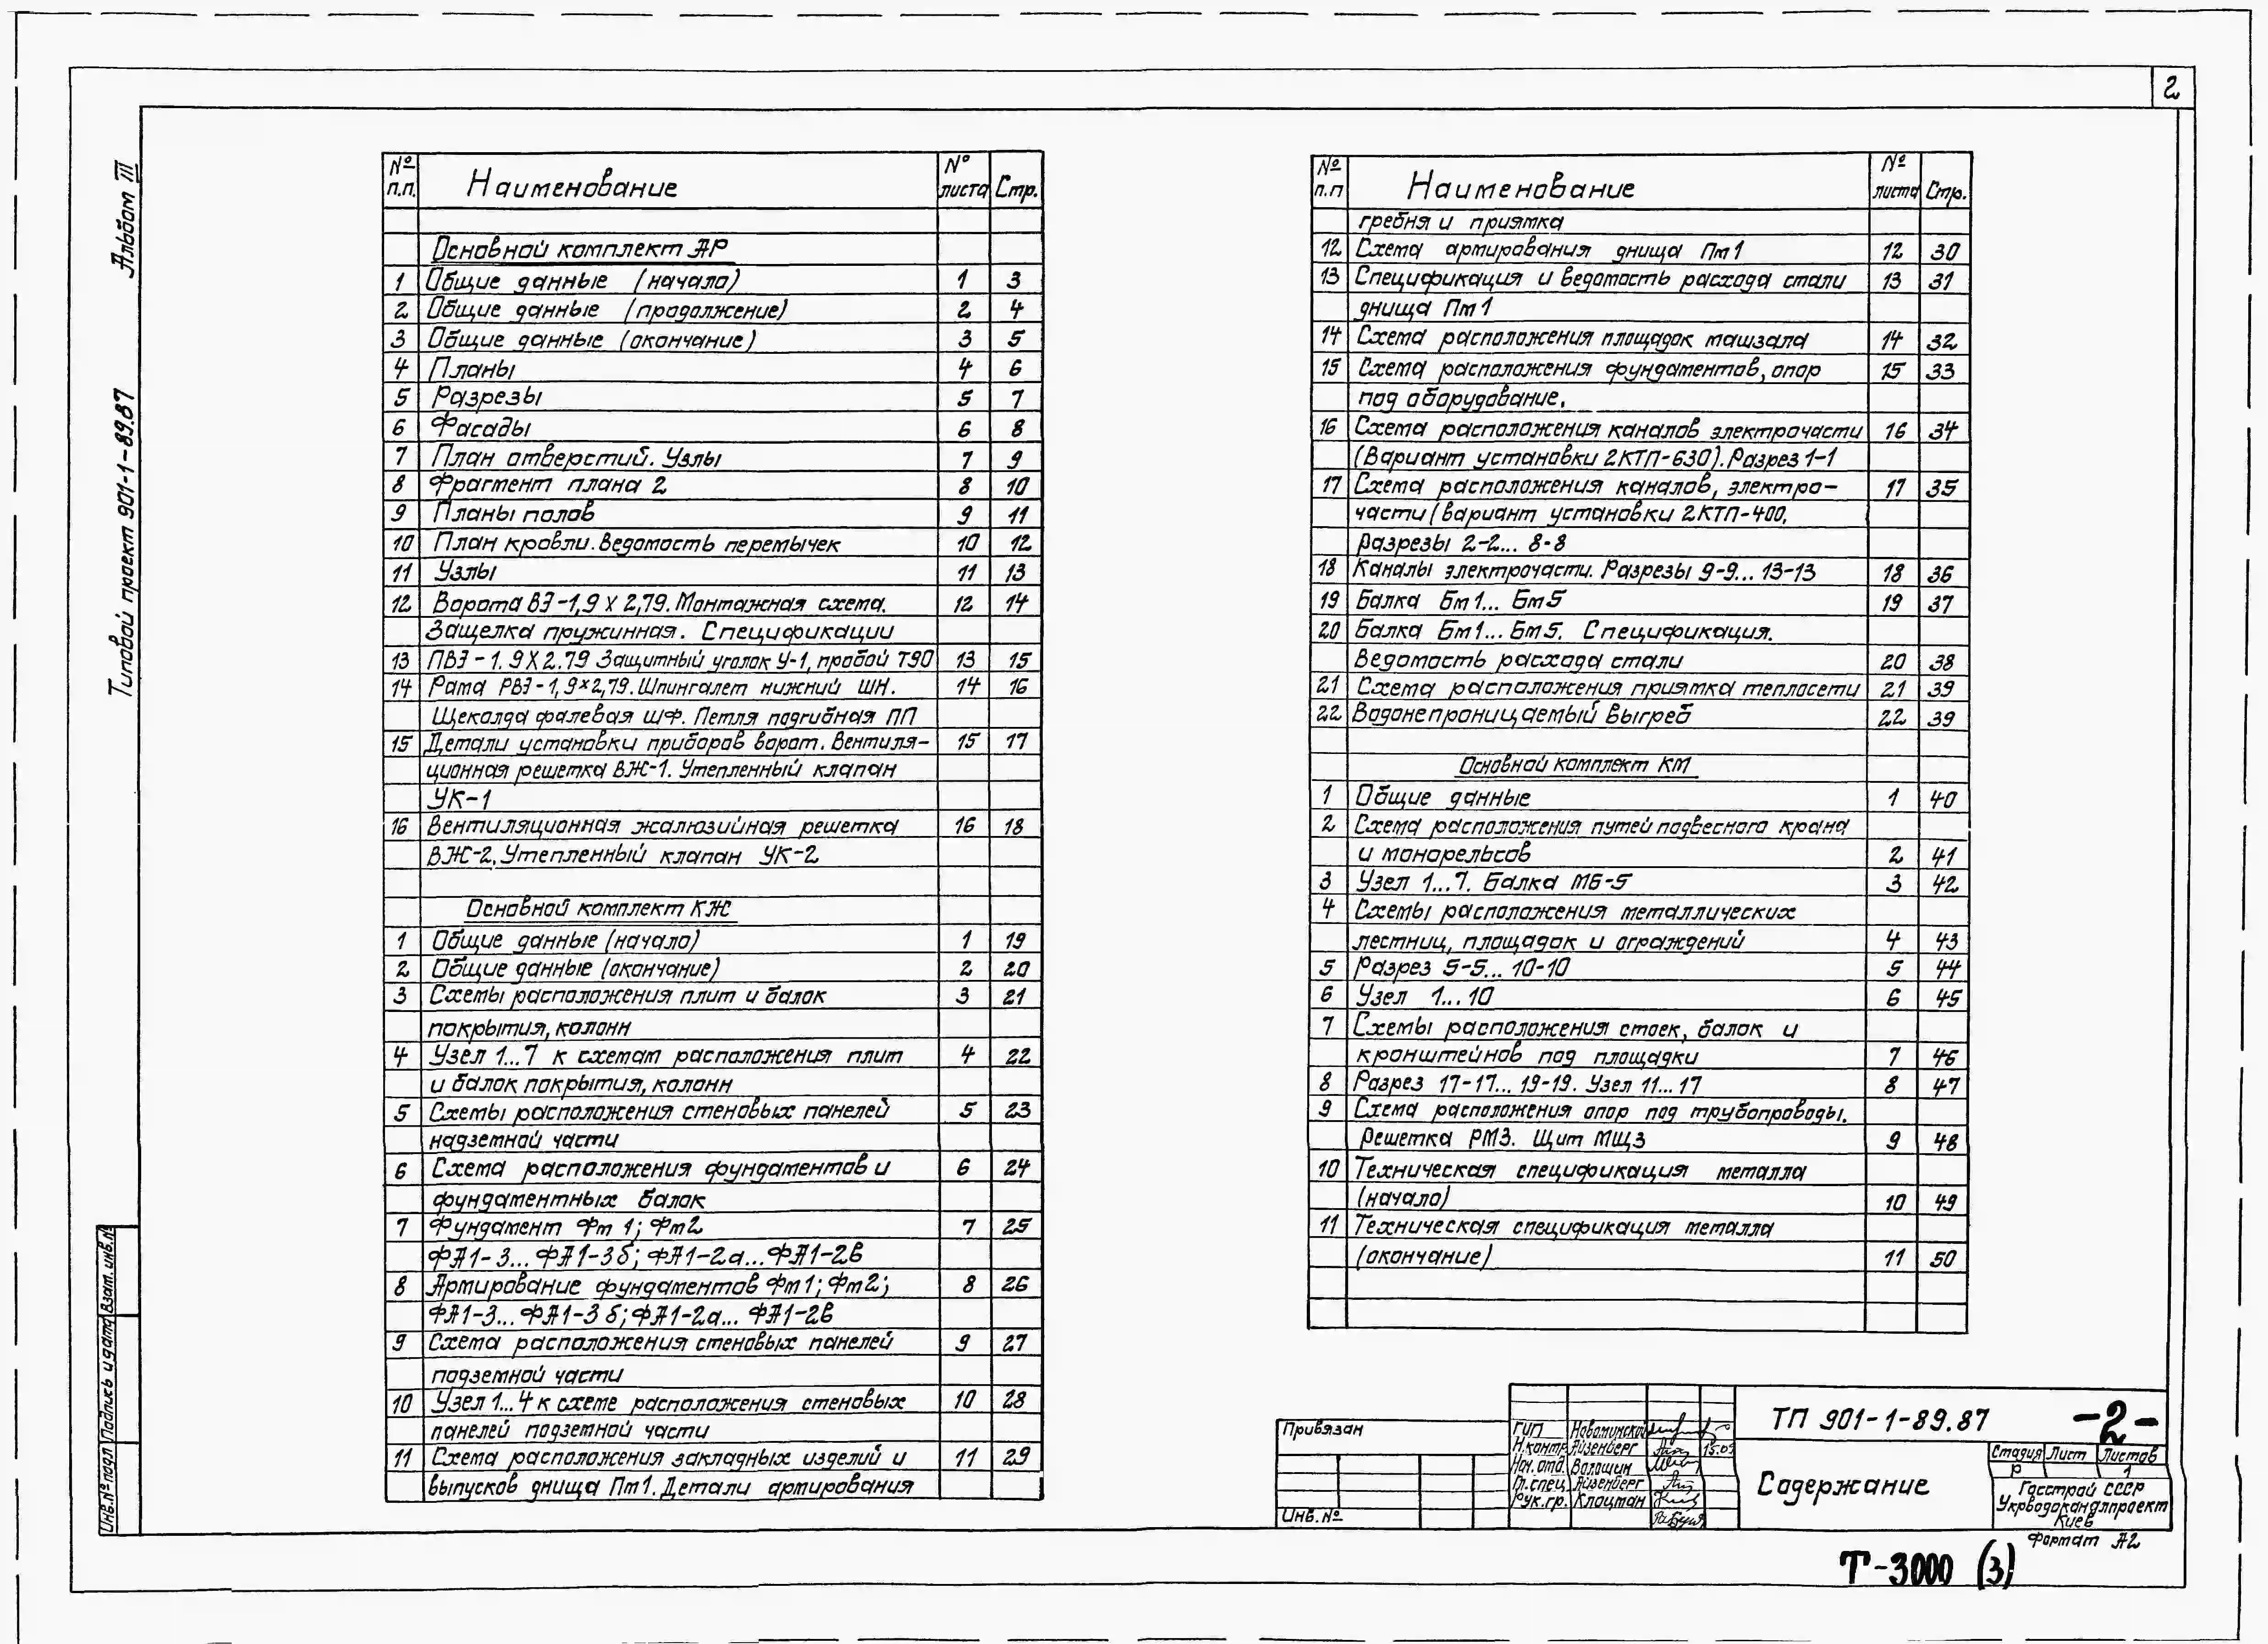 2
Альбом III
Типовой проект 901-1-89.87
№ п.п. Наименование № листа Стр.
Основной комплект АР
1 Общие данные (начало) 1 3
2 Общие данные (продолжение) 2 4
3 Общие данные (окончание) 3 5
4 Планы 4 6
5 Разрезы 5 7
6 Фасады 6 8
7 План отверстий. Узлы 7 9
8 Фрагмент плана 2 8 10
9 Планы полов 9 11
10 План кровли. Ведомость перемычек 10 12
11 Узлы 11 13
12 Ворота ВЭ-1,9 х 2,79. Монтажная схема. 12 14
Защелка пружинная. Спецификации
13 ПВЭ-1.9х2.79 Защитный уголок У-1, пробой Т90 13 15
14 Рама РВЭ-1,9х2,79. Шпингалет нижний ШН. 14 16
Щеколда фалевая ШФ. Петля подгибная ПП
15 Детали установки приборов ворот. Вентиля- 15 17
ционная решетка ВЖ-1. Утепленный клапан
УК-1
16 Вентиляционная жалюзийная решетка 16 18
ВЖ-2. Утепленный клапан УК-2
Основной комплект КЖ
1 Общие данные (начало) 1 19
2 Общие данные (окончание) 2 20
3 Схемы расположения плит и балок 3 21
покрытия, колонн
4 Узел 1...7 к схемам расположения плит 4 22
и балок покрытия, колонн
5 Схемы расположения стеновых панелей 5 23
надземной части
6 Схема расположения фундаментов и 6 24
фундаментных балок
7 Фундамент Фм 1; Фм2 7 25
ФА1-3... ФА1-3б; ФА1-2а...ФА1-2в
8 Армирование фундаментов Фм1; Фм2; 8 26
ФА1-3... ФА1-3б; ФА1-2а... ФА1-2в
9 Схема расположения стеновых панелей 9 27
подземной части
10 Узел 1...4 к схеме расположения стеновых 10 28
панелей подземной части
11 Схема расположения закладных изделий и 11 29
выпусков днища Пм1. Детали армирования
№ п.п Наименование № листа Стр.
гребня и приямка
12 Схема армирования днища Пм1 12 30
13 Спецификация и ведомость расхода стали 13 31
днища Пм1
14 Схема расположения площадок машзала 14 32
15 Схема расположения фундаментов, опор 15 33
под оборудование.
16 Схема расположения каналов электрочасти 16 34
(Вариант установки 2КТП-630). Разрез 1-1
17 Схема расположения каналов, электро- 17 35
части (вариант установки 2КТП-400,
Разрезы 2-2... 8-8
18 Каналы электрочасти. Разрезы 9-9... 13-13 18 36
19 Балка Бм1... Бм5 19 37
20 Балка Бм1... Бм5. Спецификация.
Ведомость расхода стали 20 38
21 Схема расположения приямка теплосети 21 39
22 Водонепроницаемый выгреб 22 39
Основной комплект КМ
1 Общие данные 1 40
2 Схема расположения путей подвесного крана
и монорельсов 2 41
3 Узел 1...7. Балка МБ-5 3 42
4 Схемы расположения металлических
лестниц, площадок и ограждений 4 43
5 Разрез 5-5... 10-10 5 44
6 Узел 1...10 6 45
7 Схемы расположения стоек, балок и
кронштейнов под площадки 7 46
8 Разрез 17-17... 19-19. Узел 11...17 8 47
9 Схема расположения опор под трубопроводы.
Решетка РМ3. Щит МЩ3 9 48
10 Техническая спецификация металла
(начало) 10 49
11 Техническая спецификация металла
(окончание) 11 50
Инв.№ подл Подпись и дата Взам. инв.№
Привязан
Инв. №
ГИП Новоминской
Н.контр Айзенберг 15.09
Нач. отд. Волошин
Гл. спец. Айзенберг
Рук.гр. Клоцман
ТП 901-1-89.87 -2-
Содержание
Стадия Лист Листов
Р 1
Госстрой СССР
Укрводоканалпроект
Киев
Формат А2
Т-3000 (3)